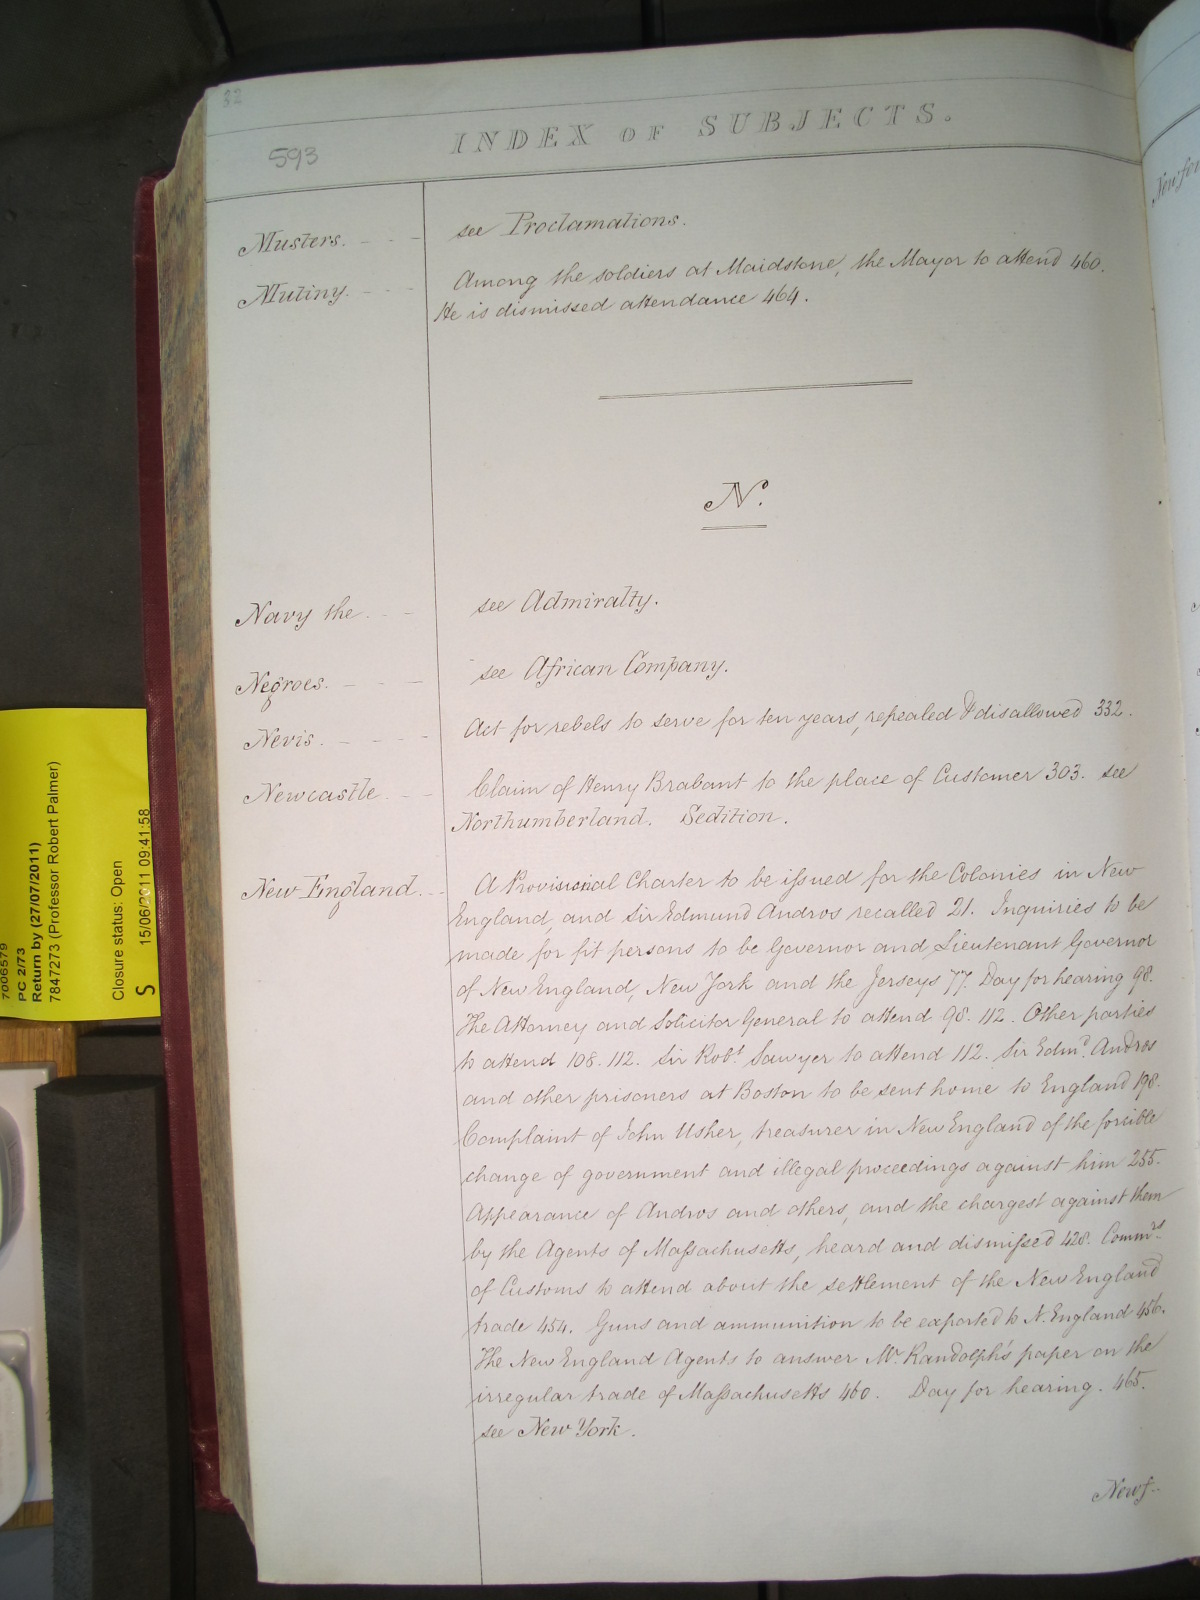 32
593
INDEX OF SUBJECTS.
Musters. - - - see Proclamations.
Mutiny. - - - Among the soldiers at Maidstone, the Mayor to attend 460.
He is dismissed attendance 464.
N.
Navy the - - see Admiralty.
Negroes. - - - see African Company.
Nevis. - - - - Act for rebels to serve for ten years, repealed & disallowed 332.
Newcastle - - Claim of Henry Brabant to the place of Customer 303. see
Northumberland. Sedition.
New England. - - A Provisional Charter to be issued for the Colonies in New
England, and Sir Edmund Andros recalled 21. Inquiries to be
made for fit persons to be Governor and Lieutenant Governor
of New England, New York and the Jerseys 77. Day for hearing 98.
The Attorney and Solicitor General to attend 98. 112. Other parties
to attend 108. 112. Sir Robt. Sawyer to attend 112. Sir Edmd. Andros
and other prisoners at Boston to be sent home to England 198.
Complaint of John Usher, treasurer in New England of the forcible
change of government and illegal proceedings against him 255.
Appearance of Andros and others, and the chargest against them
by the Agents of Massachusetts, heard and dismissed 428. Commrs.
of Customs to attend about the settlement of the New England
trade 454. Guns and ammunition to be exported to N. England 456.
The New England Agents to answer Mr Randolph's paper on the
irregular trade of Massachusetts 460. Day for hearing. 465.
see New York.
Newf--
7006579
PC 2/73
Return by (27/07/2011)
7847273 (Professor Robert Palmer)
Closure status: Open
S 15/06/2011 09:41:58